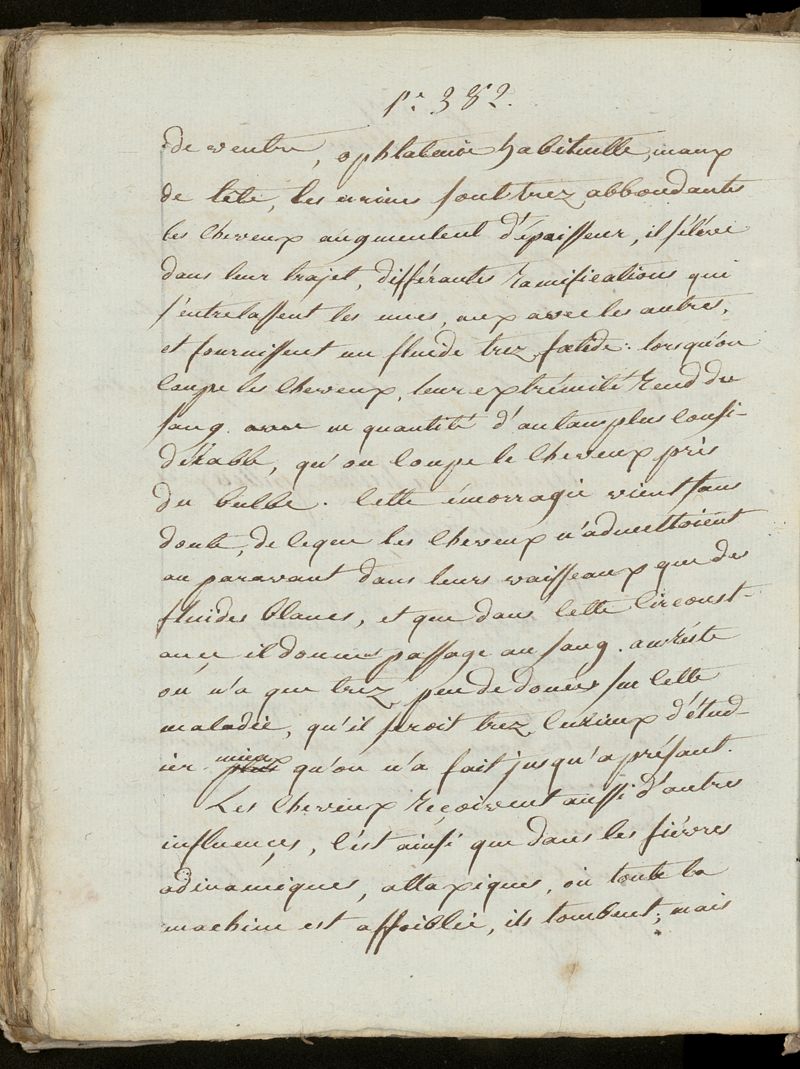 pe 382.
de ventre, ophtalmie habituelle, maux
de tête, les urines sont trez abbondantes
les cheveux augmentent d'épaisseur, il s'élève
dans leur trajet, différantes ramifications qui
s'entrelassent les unes, aux avec les autres,
et fournissent un fluide trez fœtide: lorsqu'on
coupe les cheveux, leur extrémité rend du
sang. en quantité d'autans plus consi-
dérable, qu'on coupe le cheveux près
du bulbe. Cette émorragie vient sans
doute, de ceque les cheveux n'admettoient
au paravant dans leurs vaisseaux que des
fluides blancs, et que dans cette circonst-
ance il donnes passage au sang. au réste
on n'a que trez peu de donées sur cette
maladie, qu'il seroit trez curieux d'étud-
ier mieux qu'on n'a fait jusqu'a présant.
Les cheveux reçoivent aussi d'autres
influences, c'est ainsi que dans les fièvres
adinamiques, attaxiques, où toute la
machine est affoiblie, ils tombent; mais